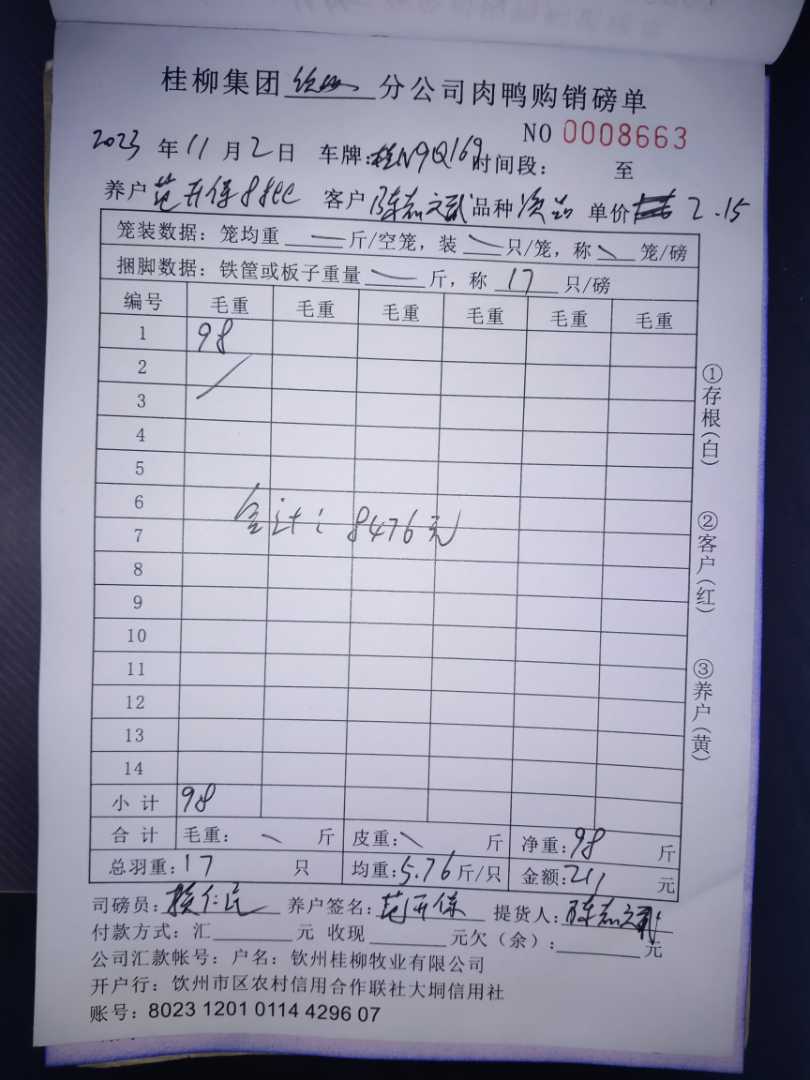 桂柳集团钦州分公司肉鸭购销磅单
NO 0008663
2023年11月2日 车牌:桂N9Q169时间段: 至
养户范开保 客户陈志文武品种次品 单价2.15
笼装数据:笼均重 斤/空笼,装 只/笼,称 笼/磅
捆脚数据:铁筐或板子重量 斤,称 17 只/磅
编号 毛重 毛重 毛重 毛重 毛重 毛重
1 98
2
3
4
5
6
合计:8476元
7
8
9
10
11
12
13
14
小计 98
合计 毛重: 斤 皮重: 斤 净重:98 斤
总羽重:17 只 均重:5.76斤/只 金额:211 元
司磅员: 养户签名:范开保 提货人:陈志文武
付款方式:汇 元 收现 元欠(余): 元
公司汇款帐号:户名:钦州桂柳牧业有限公司
开户行:钦州市区农村信用合作联社大垌信用社
账号:8023 1201 0114 4296 07
①存根(白)
②客户(红)
③养户(黄)